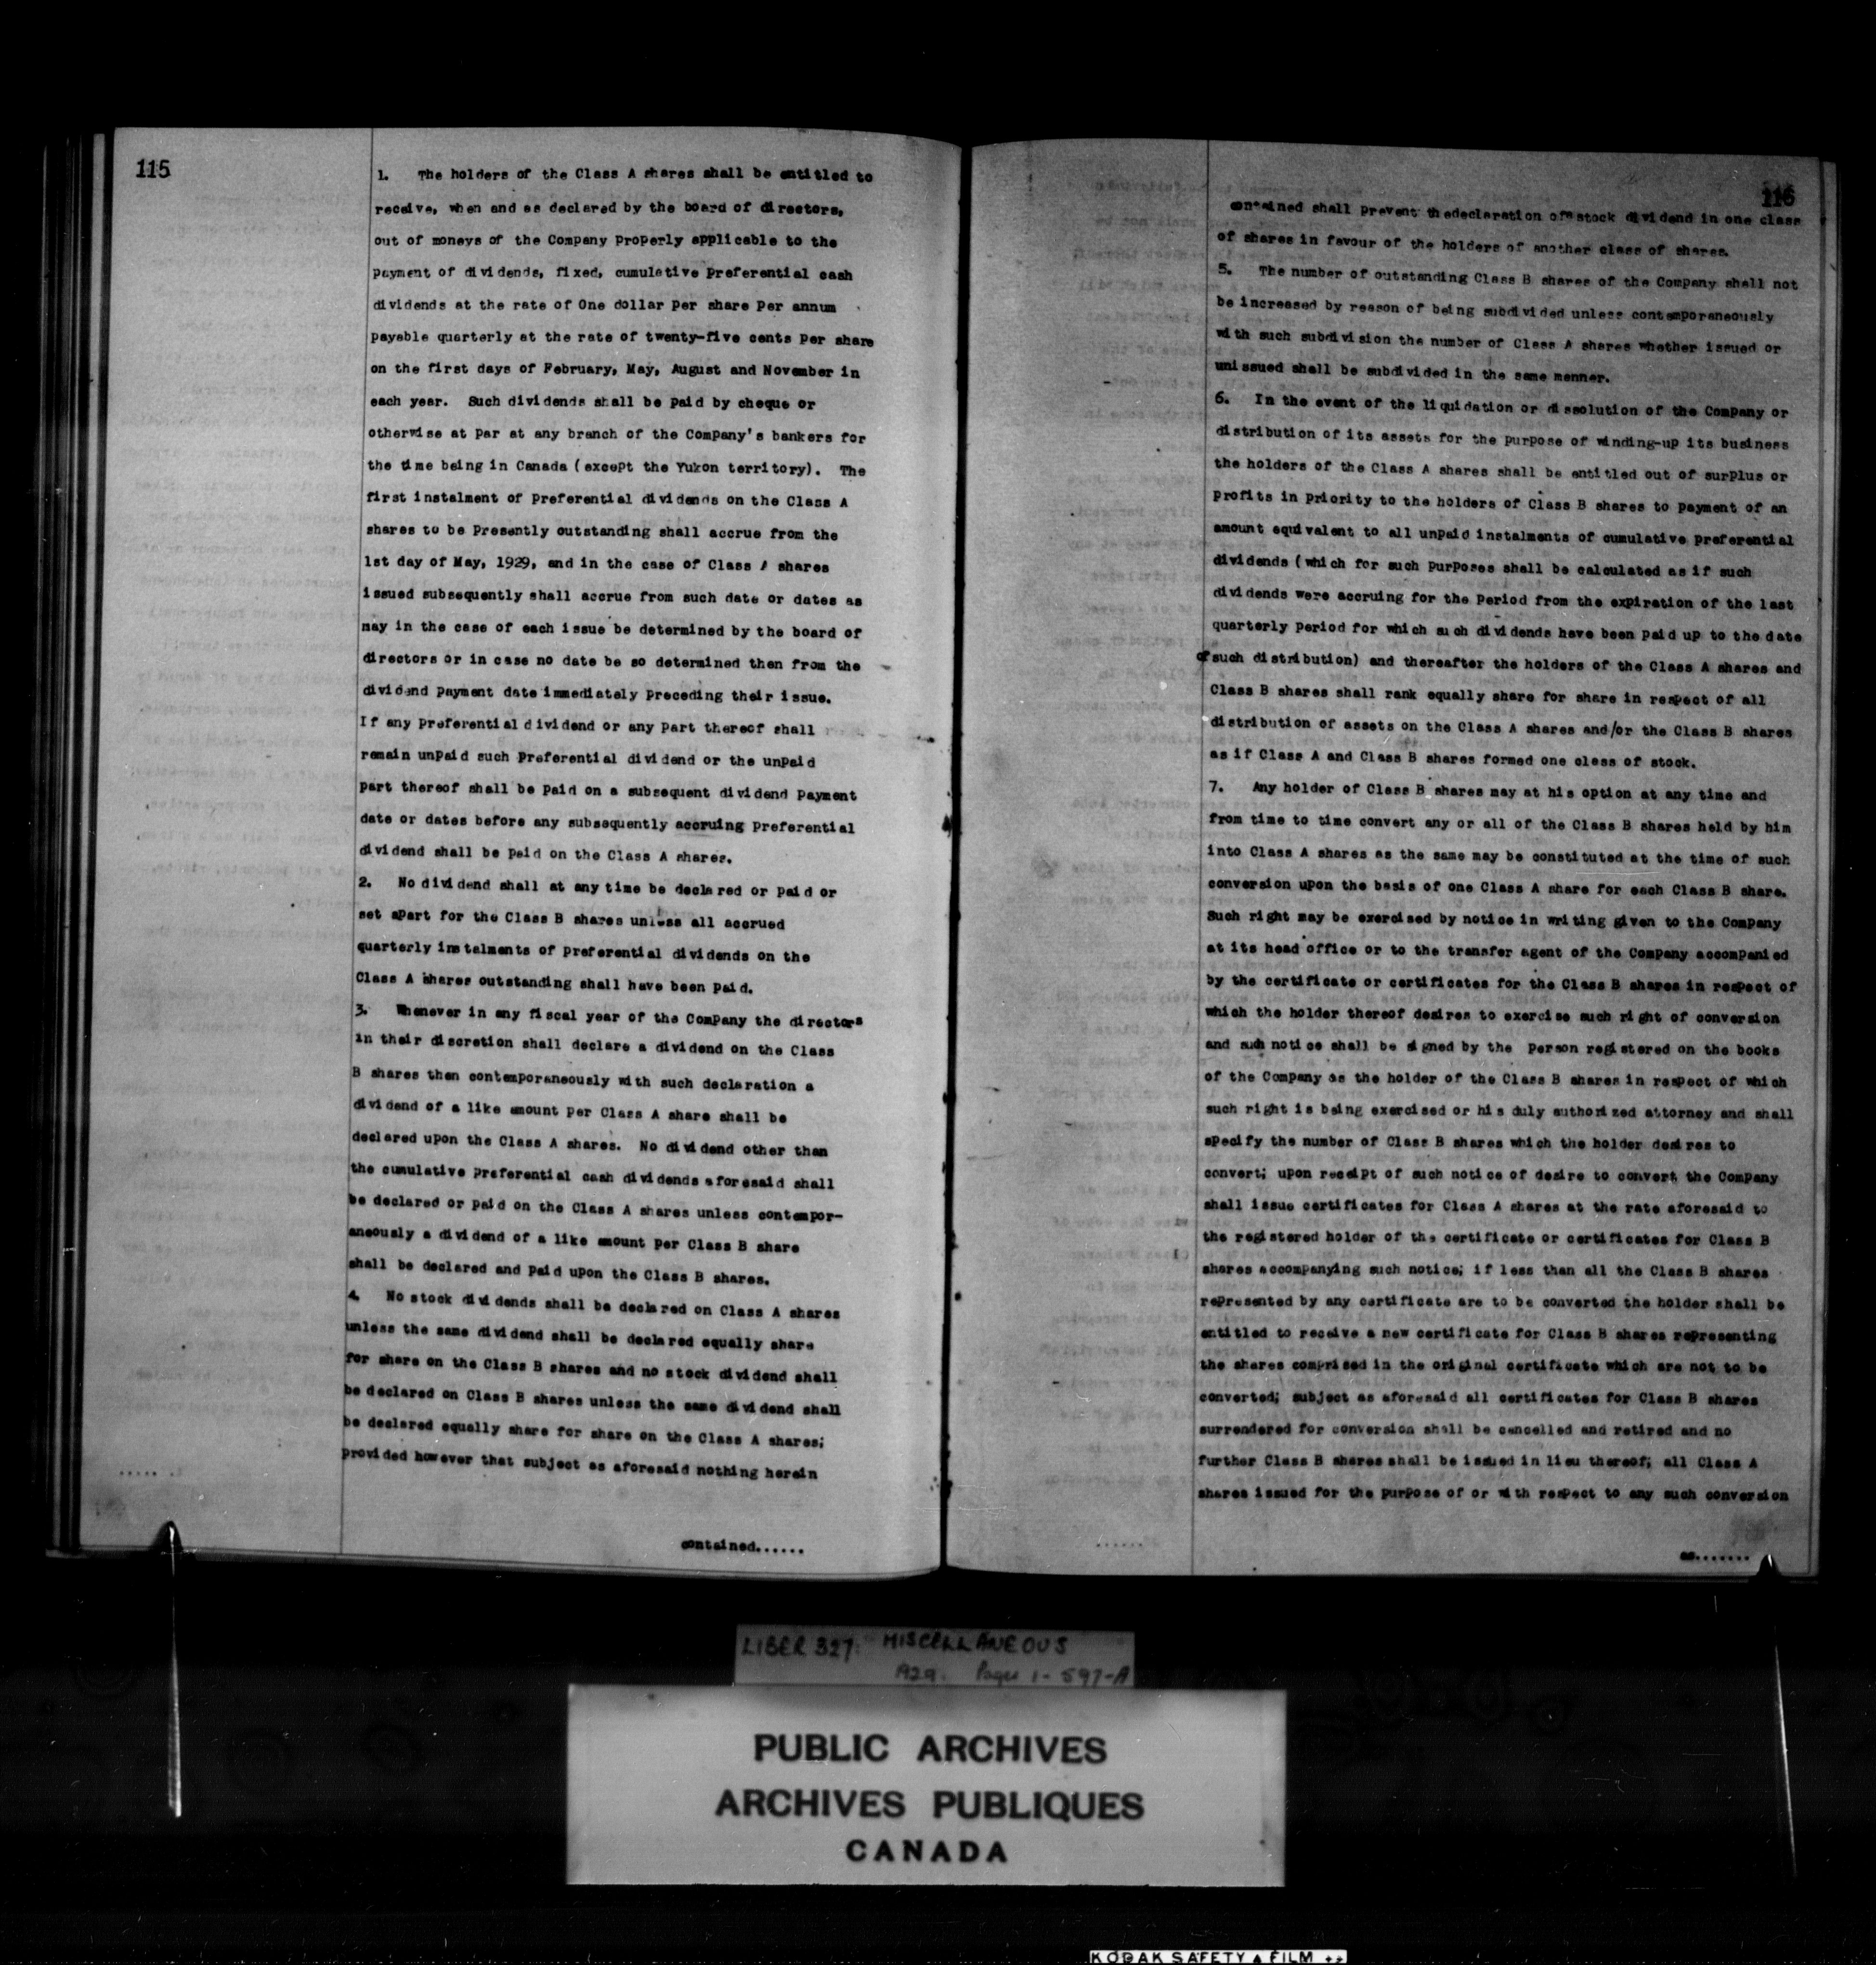 115
1. The holders of the Class A shares shall be entitled to
receive, when and as declared by the board of directors,
out of moneys of the Company properly applicable to the
payment of dividends, fixed, cumulative preferential cash
dividends at the rate of One dollar per share per annum
payable quarterly at the rate of twenty-five cents per share
on the first days of February, May, August and November in
each year. Such dividends shall be paid by cheque or
otherwise at par at any branch of the Company's bankers for
the time being in Canada (except the Yukon territory). The
first instalment of preferential dividends on the Class A
shares to be presently outstanding shall accrue from the
1st day of May, 1929, and in the case of Class A shares
issued subsequently shall accrue from such date or dates as
may in the case of each issue be determined by the board of
directors or in case no date be so determined then from the
dividend payment date immediately preceding their issue.
If any preferential dividend or any part thereof shall
remain unpaid such preferential dividend or the unpaid
part thereof shall be paid on a subsequent dividend payment
date or dates before any subsequently accruing preferential
dividend shall be paid on the Class A shares.
2. No dividend shall at any time be declared or paid or
set apart for the Class B shares unless all accrued
quarterly instalments of preferential dividends on the
Class A shares outstanding shall have been paid.
3. Whenever in any fiscal year of the Company the directors
in their discretion shall declare a dividend on the Class
B shares then contemporaneously with such declaration a
dividend of a like amount per Class A share shall be
declared upon the Class A shares. No dividend other than
the cumulative preferential cash dividends aforesaid shall
be declared or paid on the Class A shares unless contempor-
aneously a dividend of a like amount per Class B share
shall be declared and paid upon the Class B shares.
4. No stock dividends shall be declared on Class A shares
unless the same dividend shall be declared equally share
for share on the Class B shares and no stock dividend shall
be declared on Class B shares unless the same dividend shall
be declared equally share for share on the Class A shares;
provided however that subject as aforesaid nothing herein
contained......
116
contained shall prevent thedeclaration of a stock dividend in one class
of shares in favour of the holders of another class of shares.
5. The number of outstanding Class B shares of the Company shall not
be increased by reason of being subdivided unless contemporaneously
with such subdivision the number of Class A shares whether issued or
unissued shall be subdivided in the same manner.
6. In the event of the liquidation or dissolution of the Company or
distribution of its assets for the purpose of winding-up its business
the holders of the Class A shares shall be entitled out of surplus or
profits in priority to the holders of Class B shares to payment of an
amount equivalent to all unpaid instalments of cumulative preferential
dividends (which for such purposes shall be calculated as if such
dividends were accruing for the period from the expiration of the last
quarterly period for which such dividends have been paid up to the date
of such distribution) and thereafter the holders of the Class A shares and
Class B shares shall rank equally share for share in respect of all
distribution of assets on the Class A shares and/or the Class B shares
as if Class A and Class B shares formed one class of stock.
7. Any holder of Class B shares may at his option at any time and
from time to time convert any or all of the Class B shares held by him
into Class A shares as the same may be constituted at the time of such
conversion upon the basis of one Class A share for each Class B share.
Such right may be exercised by notice in writing given to the Company
at its head office or to the transfer agent of the Company accompanied
by the certificate or certificates for the Class B shares in respect of
which the holder thereof desires to exercise such right of conversion
and such notice shall be signed by the person registered on the books
of the Company as the holder of the Class B shares in respect of which
such right is being exercised or his duly authorized attorney and shall
specify the number of Class B shares which the holder desires to
convert; upon receipt of such notice of desire to convert the Company
shall issue certificates for Class A shares at the rate aforesaid to
the registered holder of the certificate or certificates for Class B
shares accompanying such notice; if less than all the Class B shares
represented by any certificate are to be converted the holder shall be
entitled to receive a new certificate for Class B shares representing
the shares comprised in the original certificate which are not to be
converted; subject as aforesaid all certificates for Class B shares
surrendered for conversion shall be cancelled and retired and no
further Class B shares shall be issued in lieu thereof; all Class A
shares issued for the purpose of or with respect to any such conversion
as.......
LIBER 327. MISCELLANEOUS
1929. Pages 1-597-A
PUBLIC ARCHIVES
ARCHIVES PUBLIQUES
CANADA
KODAK SAFETY FILM